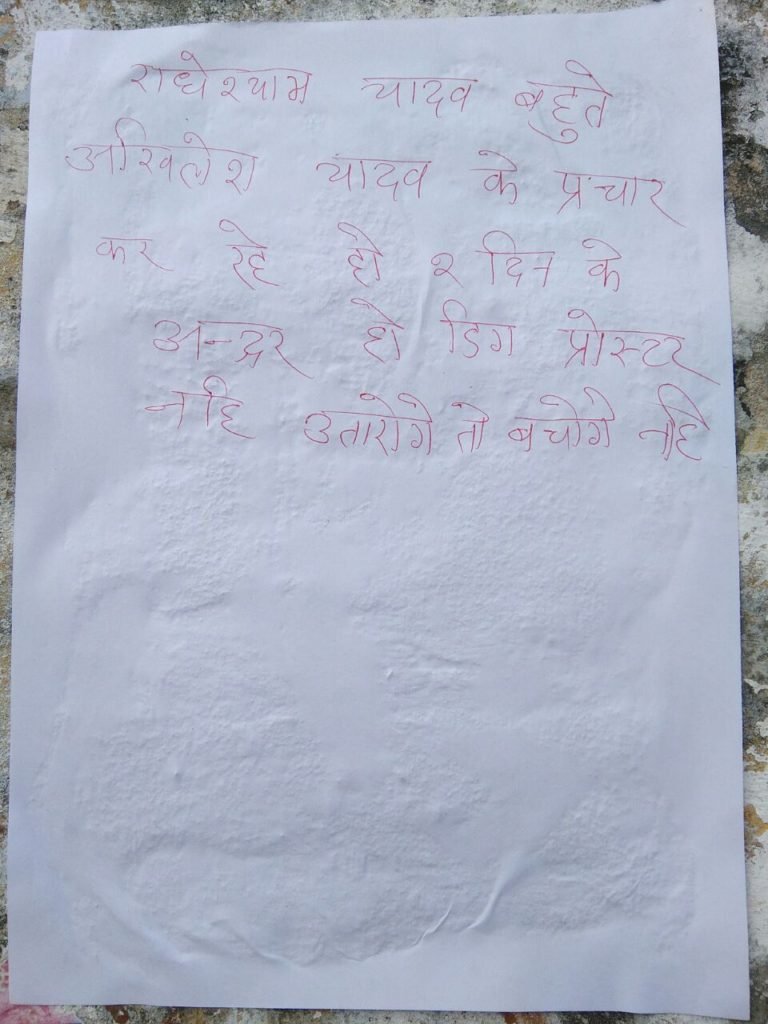 राधेश्याम यादव बहुते
अखिलेश यादव के प्रचार
कर रहे हो २ दिन के
अन्द्रर हो डिग प्रोस्टर
नहि उतारोगे तो बचोगे नहि